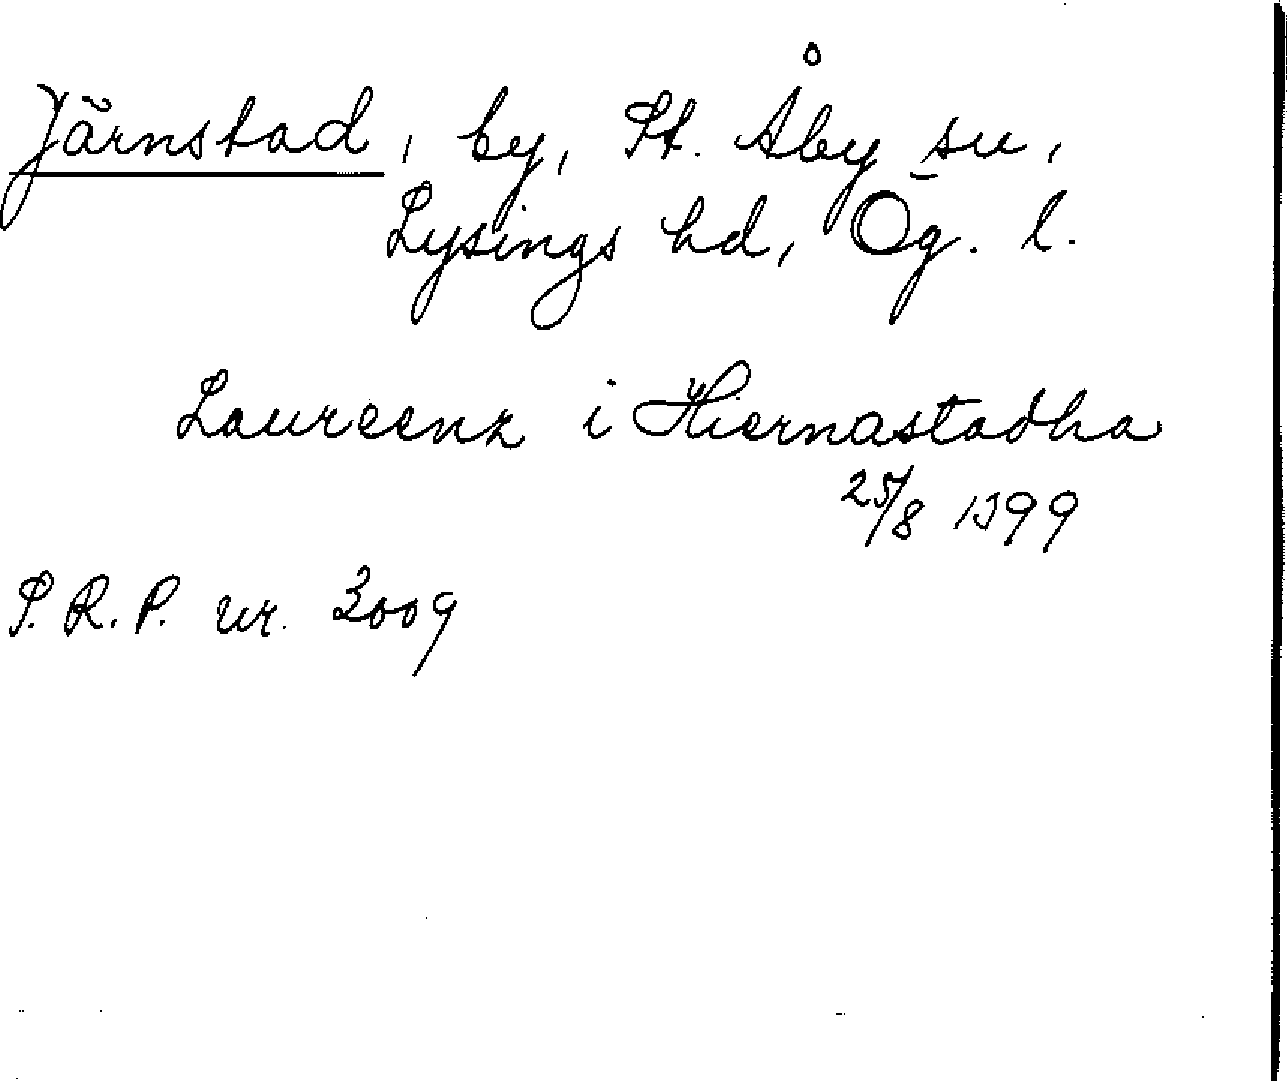 Järnstad, by, St. Åby sn,
Lysings hd, Ög. l.
Laureenz i Hiernastadha
25/8 1399
S.R.P. nr. 3009